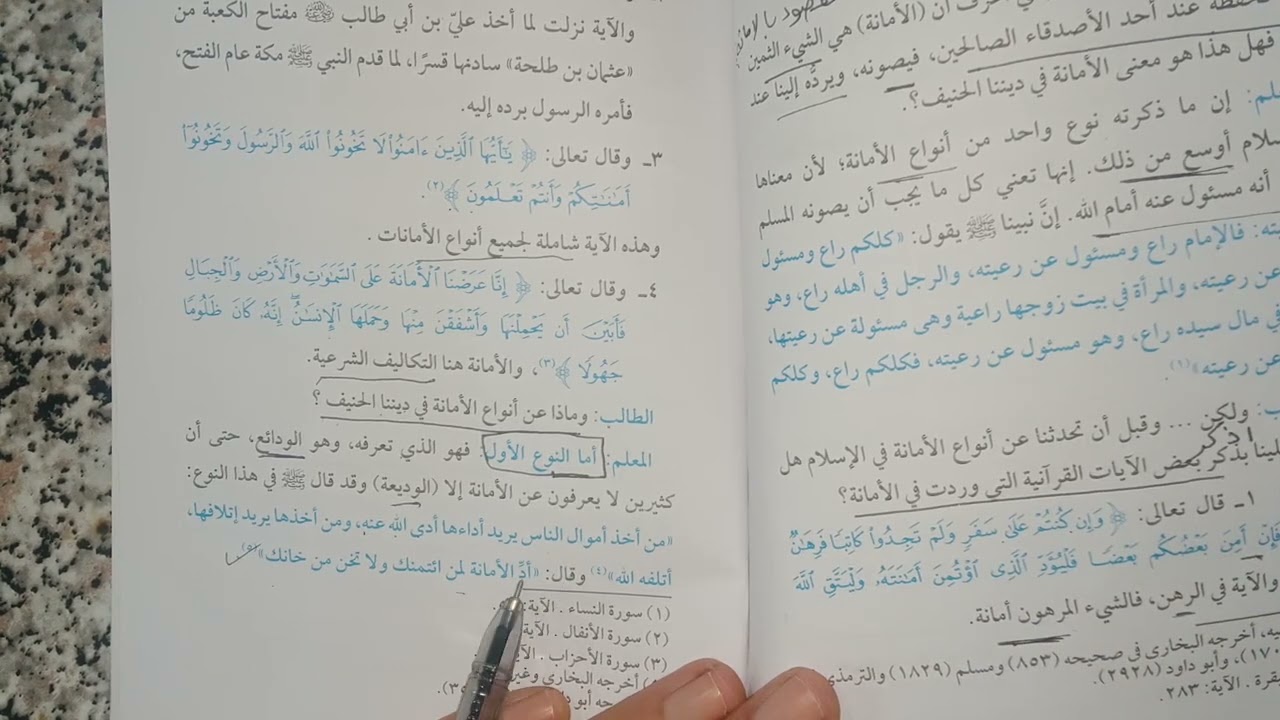 المقصود بالأمانة
أن (الأمانة) هي الشيء الثمين
عند أحد الأصدقاء الصالحين، فيصونه، ويردَّه إلينا عند
فهل هذا هو معنى الأمانة في ديننا الحنيف؟.
إن ما ذكرته نوع واحد من أنواع الأمانة؛ لأن معناها
أوسع من ذلك. إنها تعني كل ما يجب أن يصونه المسلم
أنه مسئول عنه أمام الله. إنَّ نبينا ﷺ يقول: «كلكم راع ومسئول
فالإمام راع ومسئول عن رعيته، والرجل في أهله راع، وهو
عن رعيته، والمرأة في بيت زوجها راعية وهى مسئولة عن رعيتها،
في مال سيده راع، وهو مسئول عن رعيته، فكلكم راع، وكلكم
عن رعيته»(١).
ولكن ... وقبل أن تحدثنا عن أنواع الأمانة في الإسلام هل
اذكر
بذكر بعض الآيات القرآنية التي وردت في الأمانة؟
١ـ قال تعالى: ﴿ وَإِن كُنتُمْ عَلَىٰ سَفَرٍ وَلَمْ تَجِدُوا۟ كَاتِبًا فَرِهَـٰنٌ
فَإِنْ أَمِنَ بَعْضُكُم بَعْضًا فَلْيُؤَدِّ ٱلَّذِى ٱؤْتُمِنَ أَمَـٰنَتَهُۥ وَلْيَتَّقِ ٱللَّهَ
والآية في الرهن، فالشيء المرهون أمانة.
أخرجه البخارى في صحيحه (٨٥٣) ومسلم (١٨٢٩) والترمذي
وأبو داود (٢٩٢٨).
الآية: ٢٨٣.
والآية نزلت لما أخذ عليّ بن أبي طالب ﷺ مفتاح الكعبة من
«عثمان بن طلحة» سادنها قسرًا، لما قدم النبي ﷺ مكة عام الفتح،
فأمره الرسول برده إليه.
٣ـ وقال تعالى: ﴿ يَـٰٓأَيُّهَا ٱلَّذِينَ ءَامَنُوا۟ لَا تَخُونُوا۟ ٱللَّهَ وَٱلرَّسُولَ وَتَخُونُوٓا۟
أَمَـٰنَـٰتِكُمْ وَأَنتُمْ تَعْلَمُونَ ﴾(٢).
وهذه الآية شاملة لجميع أنواع الأمانات .
٤ـ وقال تعالى: ﴿ إِنَّا عَرَضْنَا ٱلْأَمَانَةَ عَلَى ٱلسَّمَـٰوَٰتِ وَٱلْأَرْضِ وَٱلْجِبَالِ
فَأَبَيْنَ أَن يَحْمِلْنَهَا وَأَشْفَقْنَ مِنْهَا وَحَمَلَهَا ٱلْإِنسَـٰنُ ۖ إِنَّهُۥ كَانَ ظَلُومًا
جَهُولًا ﴾(٣)، والأمانة هنا التكاليف الشرعية.
الطالب: وماذا عن أنواع الأمانة في ديننا الحنيف ؟
المعلم: أما النوع الأول: فهو الذي تعرفه، وهو الودائع، حتى أن
كثيرين لا يعرفون عن الأمانة إلا (الوديعة) وقد قال ﷺ في هذا النوع:
«من أخذ أموال الناس يريد أداءها أدى الله عنه، ومن أخذها يريد إتلافها،
أتلفه الله»(٤) وقال: «أدِّ الأمانة لمن ائتمنك ولا تخن من خانك»(٥)
(١) سورة النساء . الآية:
(٢) سورة الأنفال . الآية
(٣) سورة الأحزاب .
أخرجه البخارى